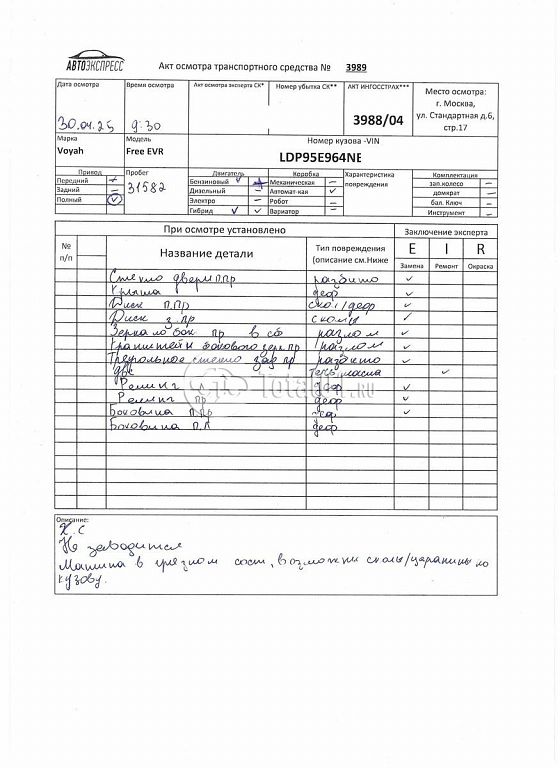 АВТОЭКСПРЕСС
Акт осмотра транспортного средства № 3989
Дата осмотра Время осмотра Акт осмотра эксперта СК* Номер убытка СК** АКТ ИНГОССТРАХ*** Место осмотра:
г. Москва,
ул. Стандартная д.6,
стр.17
30.04.25 9:30 3988/04
Марка Модель Номер кузова -VIN
Voyah Free EVR LDP95E964NE
Привод Пробег Двигатель Коробка Характеристика повреждения Комплектация
Передний Бензиновый Механическая зап.колесо
Задний 31582 Дизельный Автомат-кая домкрат
Полный Электро Робот бал. Ключ
Гибрид Вариатор Инструмент
При осмотре установлено Заключение эксперта
№ п/п Название детали Тип повреждения (описание см.Ниже E I R
Замена Ремонт Окраска
Стекло двери П.Пр разбито ✓
Крыша деф ✓
Диск П.Пр скол/деф ✓
Диск З.пр сколы ✓
Зеркало бок пр в сб разлом ✓
Кронштейн бокового зерк пр разлом ✓
Треугольное стекло зад пр разбито ✓
две течь масла ✓
Релинг л деф ✓
Релинг пр деф ✓
Боковина П.Пр деф ✓
Боковина П.Л деф
TotalCar.RU
Описание:
Х.С
Не заводится
Машина в грязном сост, возможны сколы/царапины по
кузову.